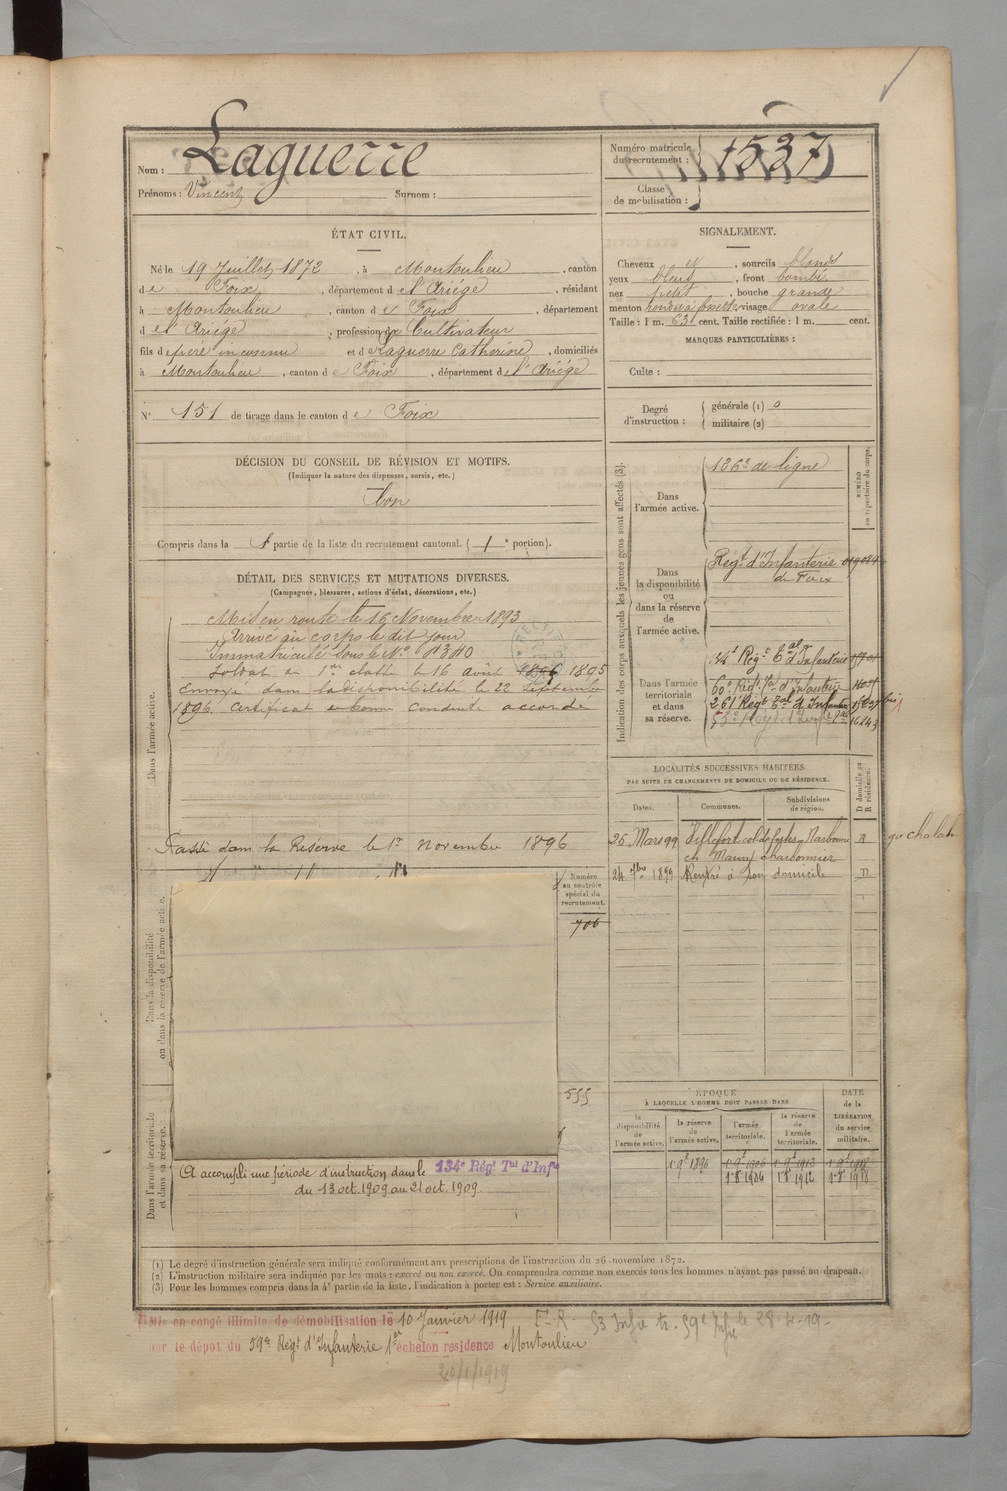 Nom : Laguerre
Prénoms : Vincent Surnom :
Numéro matricule du recrutement : 1537
Classe de mobilisation :
ÉTAT CIVIL.
Né le 19 Juillet 1872, à Montoulieu, canton
de Foix, département de l'Ariège, résidant
à Montoulieu, canton de Foix, département
de l'Ariège, profession de Cultivateur
fils de père inconnu et de Laguerre Catherine, domiciliés
à Montoulieu, canton de Foix, département de l'Ariège
N° 151 de tirage dans le canton de Foix
SIGNALEMENT.
Cheveux et, sourcils blonds
yeux bleus, front bombé
nez petit, bouche grande
menton rond à fossette visage ovale
Taille : 1 m. 63 cent. Taille rectifiée : 1 m. cent.
MARQUES PARTICULIÈRES :
Culte :
Degré d'instruction : générale (1) 0
militaire (2)
DÉCISION DU CONSEIL DE RÉVISION ET MOTIFS.
(Indiquer la nature des dispenses, sursis, etc.)
bon
Compris dans la 1 partie de la liste du recrutement cantonal. (1e portion).
DÉTAIL DES SERVICES ET MUTATIONS DIVERSES.
(Campagnes, blessures, actions d'éclat, décorations, etc.)
Dans l'armée active.
Mis en route le 16 Novembre 1893
Arrivé au corps le dit jour
Immatriculé sous le N°
Soldat de 1re classe le 16 août 1895
Envoyé dans la disponibilité le 22 Septembre
1896. Certificat de bonne conduite accordé
Passé dans la Réserve le 1er Novembre 1896
Dans la disponibilité ou dans la réserve de l'armée active.
Numéro au contrôle spécial du recrutement.
706
555
Dans l'armée territoriale et dans sa réserve.
A accompli une période d'instruction dans le 134e Régt Tal d'Infie
du 13 oct. 1909 au 21 oct. 1909.
Indication des corps auxquels les jeunes gens sont affectés (3).
NUMÉRO au répertoire du corps.
Dans l'armée active.
126e de ligne
Dans la disponibilité ou dans la réserve de l'armée active.
Régt d'Infanterie
de Foix
Dans l'armée territoriale et dans sa réserve.
134e Régt Tal d'Infanterie
60e Régt Tal d'Infanterie
261 Régt Tal d'Infanterie
LOCALITÉS SUCCESSIVES HABITÉES
PAR SUITE DE CHANGEMENTS DE DOMICILE OU DE RÉSIDENCE.
Dates. Communes. Subdivisions de région. D domicile ou R résidence.
26 Mars 99 Villefort Narbonne R
ch Maury charbonnier
24 9bre 1899 Rentré à son domicile D
ÉPOQUE
À LAQUELLE L'HOMME DOIT PASSER DANS
DATE de la LIBÉRATION du service militaire.
la disponibilité de l'armée active.
la réserve de l'armée active.
l'armée territoriale.
la réserve de l'armée territoriale.
1er 9bre 1896 1er 9bre 1906 1er 9bre 1912 1er 9bre 1918
1er 8bre 1906 1er 8bre 1912 1er 8bre 1918
(1) Le degré d'instruction générale sera indiqué conformément aux prescriptions de l'instruction du 26 novembre 1872.
(2) L'instruction militaire sera indiquée par les mots : exercé ou non exercé. On comprendra comme non exercés tous les hommes n'ayant pas passé au drapeau.
(3) Pour les hommes compris dans la 4e partie de la liste, l'indication à porter est : Service auxiliaire.
Mis en congé illimité de démobilisation le 10 Janvier 1919
sur le dépot du 59e Régt d'Infanterie 1er échelon residence Montoulieu
F-R- 53 Infie tr. 59e Infie le 28-4-19-
20/1/1919